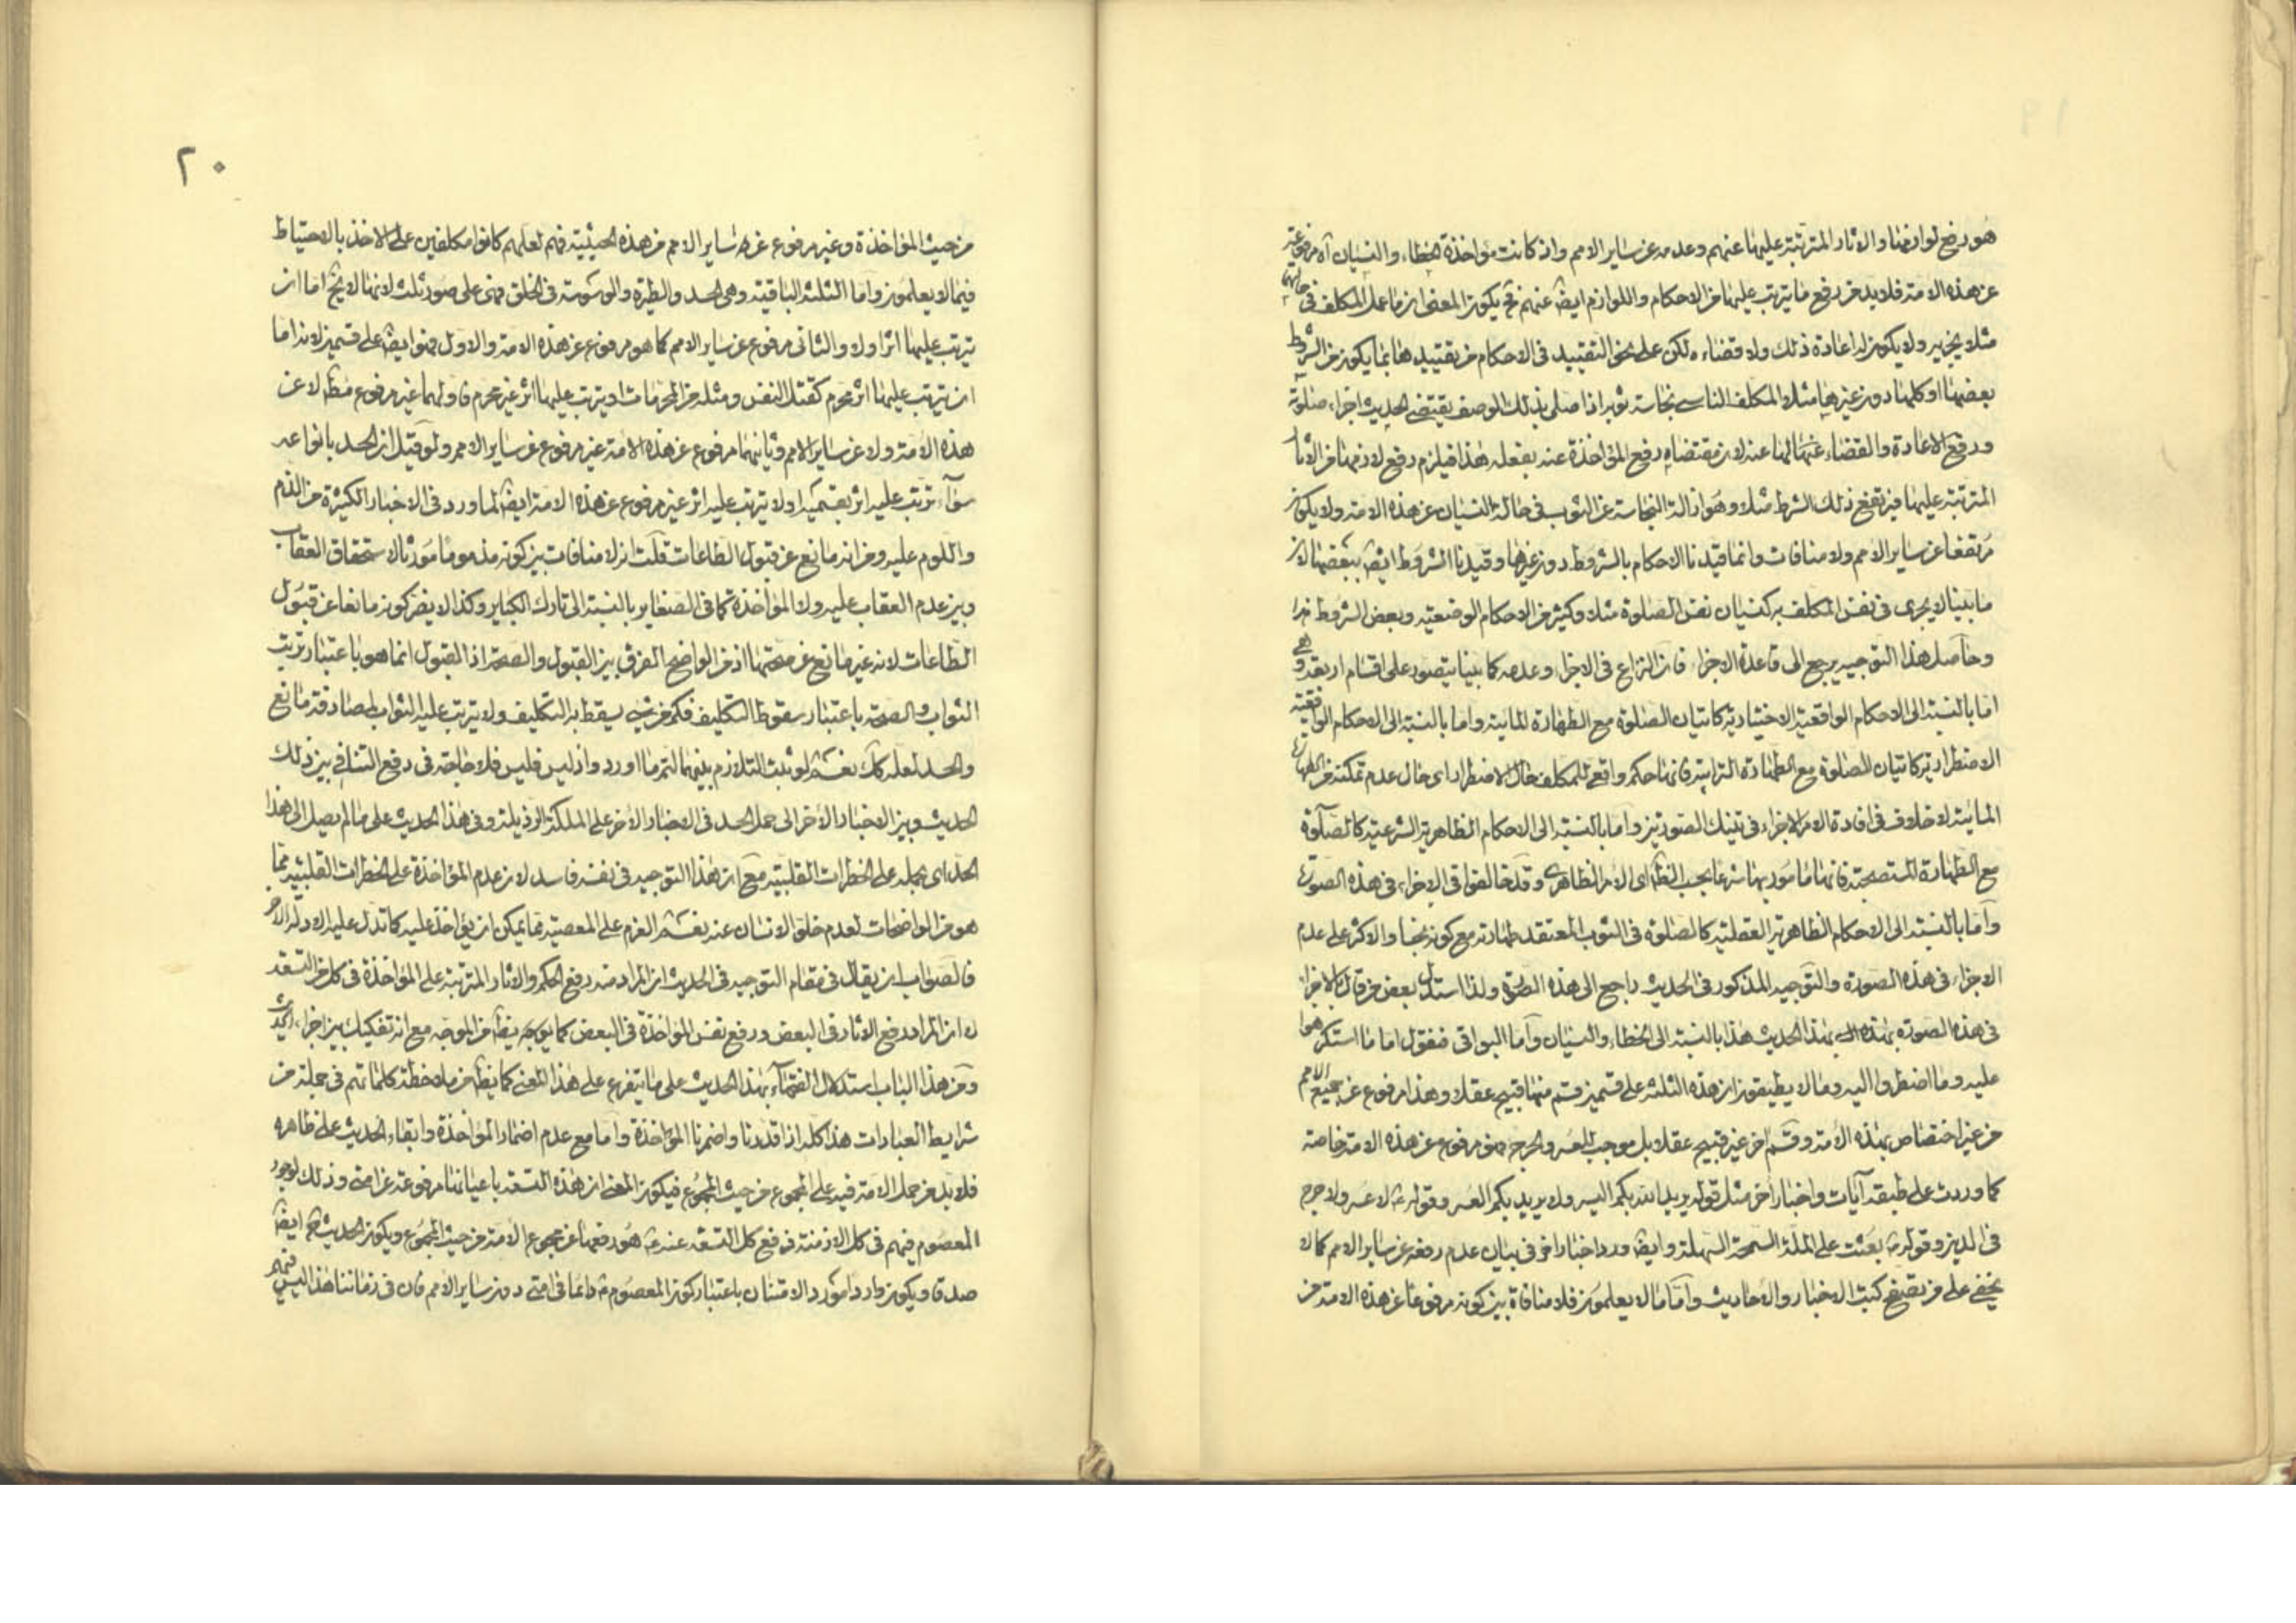 هو رفع لوازمها والاثار المترتبة عليها عنهم وعدمه عن ساير الامم واذ كانت مؤاخذة الخطاء والنسيان آه مرفوعة
عن هذه الامة فلابد من رفع ما يترتب عليها من الاحكام واللوازم ايضا عنهم فح يكون المعنى ان ما عمل المكلف في حالتها
مثلا يجزيه ولا يكون له اعادة ذلك ولا قضاءه لكن على نحو التقييد في الاحكام من تقييدها بما يكون من الشروط
بعضها او كلها دون غيرها مثلا المكلف الناسي نجاسة ثوبه اذا صلى بذلك الوصف يقتضي الحديث اجزاء صلوته
ورفع الاعادة والقضاء عنه لان مقتضاه رفع المؤاخذة عنه بفعله هذا فيلزم رفع لازمها من الاثار
المترتبة عليها فيرتفع ذلك الشرط مثلا وهو ازالة النجاسة عن الثوب في حالة النسيان عن هذه الامة ولا يكون
مرتفعا عن ساير الامم ولا منافات وانما قيدنا الاحكام بالشروط دون غيرها وقيدنا الشروط ايضا ببعضها لان
ما بينا لا يجرى في نفس المكلف به كنسيان نفس الصلوة مثلا وكثير من الاحكام الوضعية وبعض الشروط
وحاصل هذا التوجيه يرجع الى قاعدة الاجزاء فان النزاع في الاجزاء وعدمه كما بينا يتصور على اقسام اربعة وهي
اما بالنسبة الى الاحكام الواقعية الاختيارية كاتيان الصلوة مع الطهارة المائية واما بالنسبة الى الاحكام الواقعية
الاضطرارية كاتيان الصلوة مع الطهارة الترابية فانها حكم واقعي للمكلف حال الاضطرار اى حال عدم تمكنه من الطهارة
المائية لا خلاف في افادة الامر الاجزاء في تينك الصورتين واما بالنسبة الى الاحكام الظاهرية الشرعية كالصلوة
مع الطهارة المستصحبة فانها مامور بها شرعا بحسب الظاهر اى الامر الظاهرى وقد خالفوا في الاجزاء في هذه الصورة
واما بالنسبة الى الاحكام الظاهرية العقلية كالصلوة في الثوب المعتقد طهارته مع كونه نجسا والاكثر على عدم
الاجزاء في هذه الصورة والتوجيه المذكور في الحديث راجع الى هذه الصورة ولذا استدل بعض من قال بالاجزاء
في هذه الصورة بهذا الحديث هذا بالنسبة الى الخطاء والنسيان واما البواقي فنقول اما ما استكرهوا
عليه وما اضطروا اليه وما لا يطيقون ان هذه الثلثة على قسمين قسم منها قبيح عقلا وهذا مرفوع عن جميع الامم
من غير اختصاص بهذه الامة وقسم اخر غير قبيح عقلا بل موجب للعسر والحرج فهو مرفوع عن هذه الامة خاصة
كما وردت على طبقه آيات واخبار اخر مثل قوله يريد الله بكم اليسر ولا يريد بكم العسر وقوله لا عسر ولا حرج
في الدين وقوله بعثت على الملة السمحة السهلة وايضا ورد اخبار اخر في بيان عدم رفعه عن ساير الامم كما لا
يخفى على من تصفح كتب الاخبار والاحاديث واما ما لا يعلمون فلا منافاة بين كونه مرفوعا عن هذه الامة من
٢٠
من حيث المؤاخذة وغير مرفوع عن ساير الامم من هذه الحيثية فهم لعلهم كانوا مكلفين على الاخذ بالاحتياط
فيما لا يعلمون واما الثلثة الباقية وهى الحسد والطيرة والوسوسة في الخلق فهى على صور ثلث لانها لا يخ اما ان
يترتب عليها اثر اولا والثاني مرفوع عن ساير الامم كما هو مرفوع عن هذه الامة والاول فهو ايضا على قسمين لانه اما
ان يترتب عليها اثر محرم كقتل النفس ومثله من المحرمات او يترتب عليها اثر غير محرم فاولهما غير مرفوع مطلقا لا عن
هذه الامة ولا عن ساير الامم وثانيهما مرفوع عن هذه الامة غير مرفوع عن ساير الامم ولو قيل ان الحسد بانواعه
سواء ترتب عليه اثر بقسميه او لا يترتب عليه اثر غير مرفوع عن هذه الامة ايضا لما ورد في الاخبار الكثيرة من الذم
واللوم عليه ومن انه مانع عن قبول الطاعات قلت ان لا منافات بين كونه مذموما مورثا لاستحقاق العقاب
وبين عدم العقاب عليه ولا المؤاخذة كما في الصغاير بالنسبة الى تارك الكباير وكذا لا يضر كونه مانعا عن قبول
الطاعات لانه غير مانع عن صحتها اذ من الواضح الفرق بين القبول والصحة اذ القبول انما هو باعتبار ترتب
الثواب والصحة باعتبار سقوط التكليف فكم من شئ يسقط به التكليف ولا يترتب عليه الثواب لمصادفة مانع
والحسد لعله كك نعم لو ثبت التلازم بينهما لتم ما اورد واذ ليس فليس فلا حاجة في دفع التنافي بين ذلك
الحديث وبين الاخبار الاخر الى حمل الحسد في الاخبار الاخر على الملكة الرذيلة وفي هذا الحديث على ما لم يصل الى هذا
الحد اى بحمله على الخطرات القلبية مع ان هذا التوجيه في نفسه فاسد لان عدم المؤاخذة على الخطرات القلبية مما
هو من الواضحات لعدم خلو الانسان عنه نعم العزم على المعصية مما يمكن ان يؤاخذ عليه كما تدل عليه الادلة الاخر
فالصواب ان يقال في مقام التوجيه في الحديث ان المراد منه رفع الحكم والاثار المترتبة على المؤاخذة في كل من التسعة
لا ان المراد رفع الاثار في البعض ورفع نفس المؤاخذة في البعض كما يوجه به بعض من الموجه مع انه تفكيك بين اجزاء الحديث
ومن هذا الباب استدلال الفقهاء بهذا الحديث على ما يتفرع على هذا المعنى كما يظهر من ملاحظة كلماتهم في جملة من
شرايط العبادات هذا كله اذا قدرنا واضمرنا المؤاخذة واما مع عدم اضمار المؤاخذة وابقاء الحديث على ظاهره
فلابد من حمل الامة فيه على المجموع من حيث المجموع فيكون المعنى ان هذه التسعة باعيانها مرفوعة عن امتى وذلك لوجود
المعصوم فيهم في كل الازمنة فرفع كل التسعة عنه هو رفعها عن مجموع الامة من حيث المجموع ويكون الحديث ح ايضا
صدقا ويكون واردا مورد الامتنان باعتبار كون المعصوم دائما في امتى دون ساير الامم فان في زماننا هذا ليس فيهم